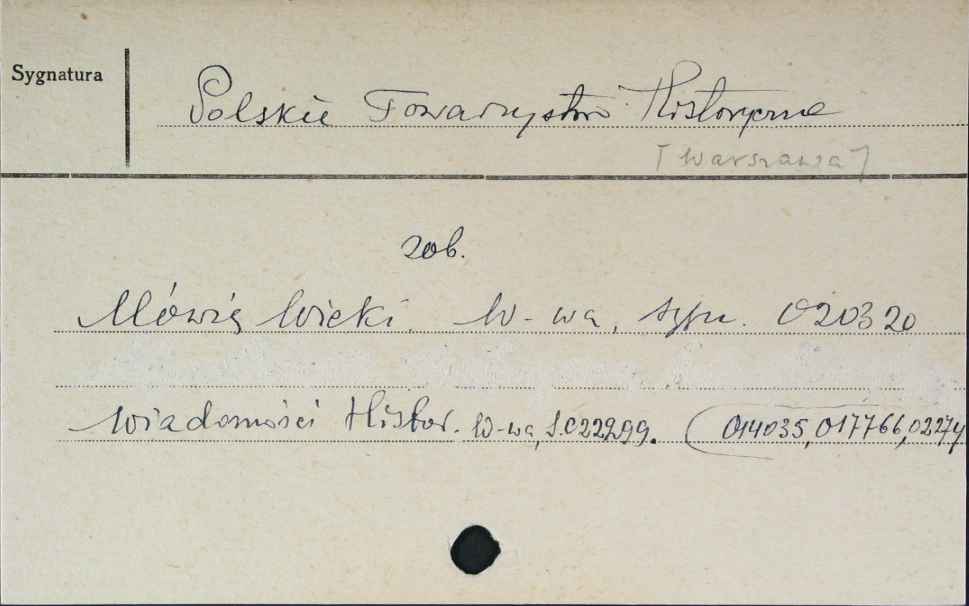 Sygnatura
Polskie Towarzystwo Historyczne
[Warszawa]
zob.
Mówią Wieki. W-wa, sygn. 020320
Wiadomości Histor. W-wa, S.022299. (014035, 017766, 02274